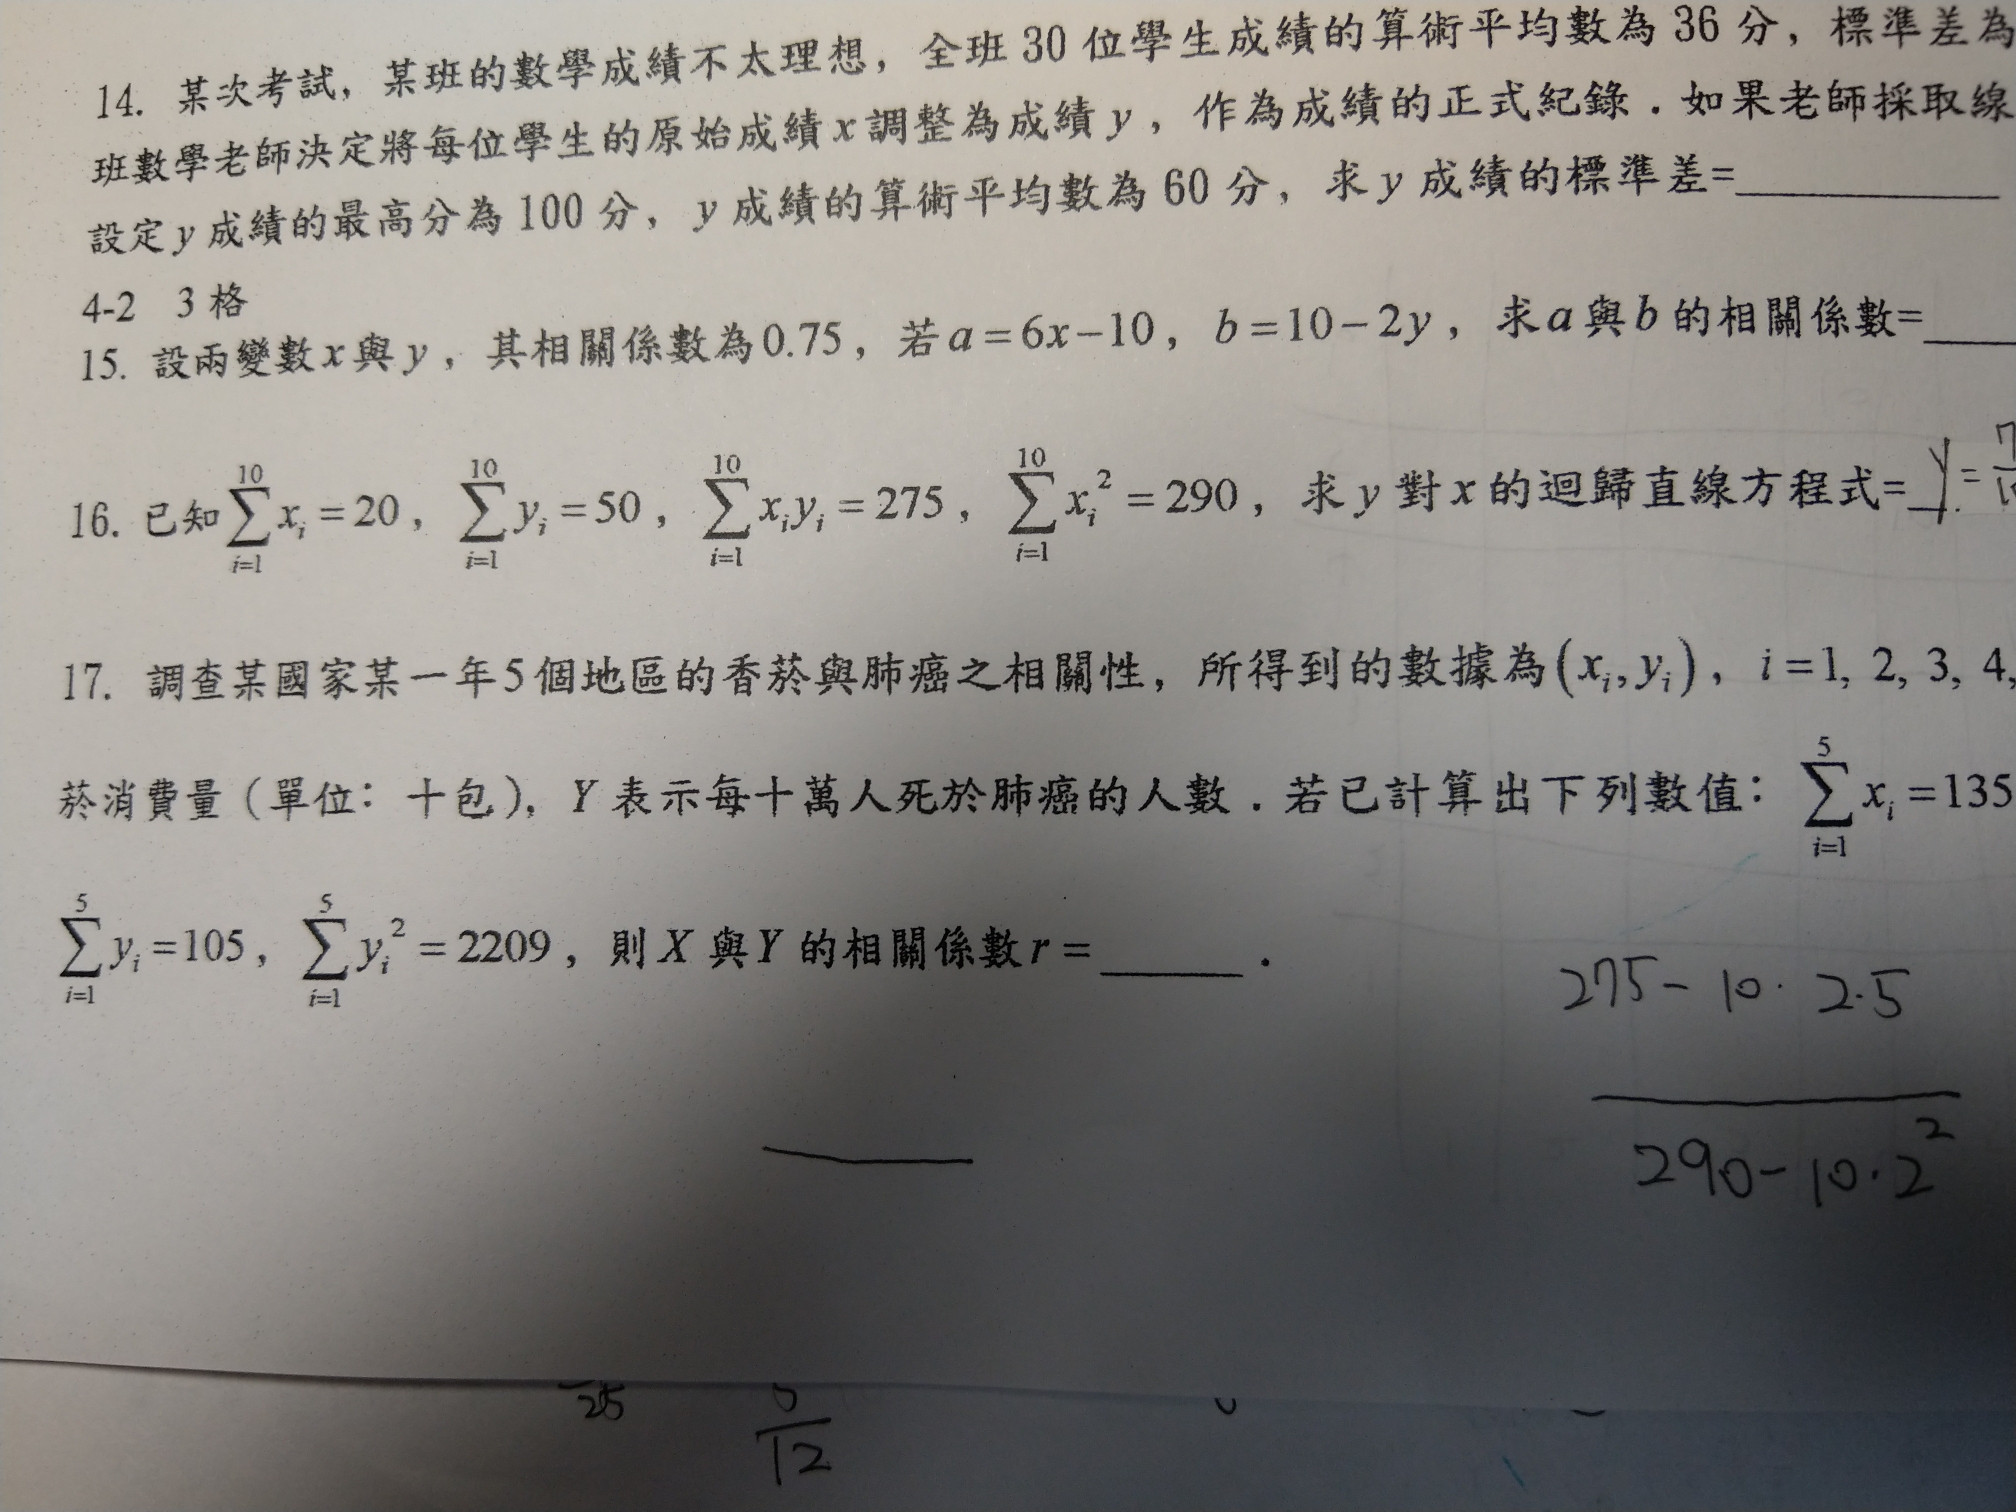 14. 某次考試，某班的數學成績不太理想，全班 30 位學生成績的算術平均數為 36 分，標準差為
班數學老師決定將每位學生的原始成績 x 調整為成績 y，作為成績的正式紀錄．如果老師採取線
設定 y 成績的最高分為 100 分，y 成績的算術平均數為 60 分，求 y 成績的標準差=
4-2 3 格
15. 設兩變數 x 與 y，其相關係數為 0.75，若 a=6x-10，b=10-2y，求 a 與 b 的相關係數=
16. 已知 \sum_{i=1}^{10} x_i = 20，\sum_{i=1}^{10} y_i = 50，\sum_{i=1}^{10} x_i y_i = 275，\sum_{i=1}^{10} x_i^2 = 290，求 y 對 x 的迴歸直線方程式= y =
17. 調查某國家某一年 5 個地區的香菸與肺癌之相關性，所得到的數據為 (x_i, y_i)，i = 1, 2, 3, 4,
菸消費量（單位：十包），Y 表示每十萬人死於肺癌的人數．若已計算出下列數值：\sum_{i=1}^{5} x_i = 135
\sum_{i=1}^{5} y_i = 105，\sum_{i=1}^{5} y_i^2 = 2209，則 X 與 Y 的相關係數 r = ．
275 - 10 · 2·5
290 - 10 · 2^2
25
12